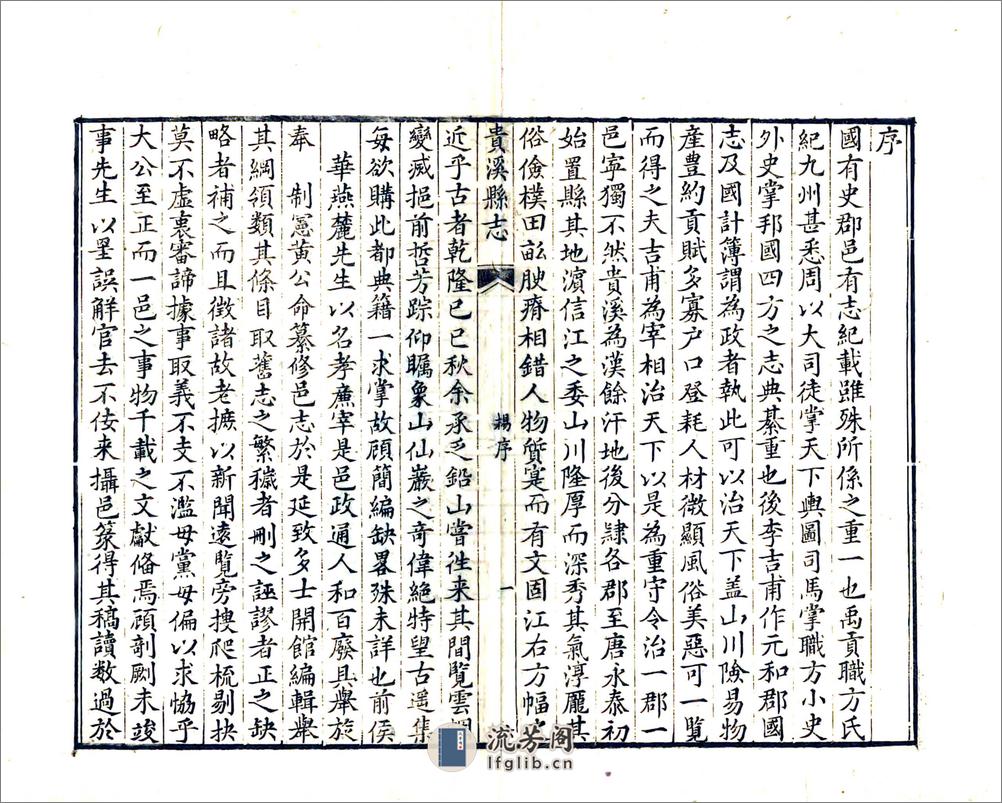 序
國有史郡邑有志紀載雖殊所係之重一也禹貢職方氏
紀九州甚悉周以大司徒掌天下輿圖司馬掌職方小史
外史掌邦國四方之志典綦重也後李吉甫作元和郡國
志及國計簿謂為政者執此可以治天下盖山川險易物
產豊約貢賦多寡户口登耗人材微顯風俗美惡可一覽
而得之夫吉甫為宰相治天下以是為重守令治一郡一
邑寧獨不然貴溪為漢餘汗地後分隷各郡至唐永泰初
始置縣其地濵信江之委山川隆厚而深秀其氣淳龎其
俗儉樸田畝腴瘠相錯人物質寔而有文固江右方幅
貴溪縣志
楊序
一
近乎古者乾隆已巳秋余承乏鉛山嘗徃来其間覽雲烟
變滅挹前哲芳踪仰矚象山仙巖之奇偉絶特望古遥集
每欲購此都典籍一求掌故顧簡編缺畧殊未詳也前侯
華燕麓先生以名孝亷宰是邑政通人和百廢具舉旋
奉 制憲黄公命纂修邑志於是延致多士開館編輯舉
其綱領類其條目取舊志之繁穢者刪之誣謬者正之缺
略者補之而且徵諸故老摭以新聞遠覽旁搜爬梳剔抉
莫不虚衷審諦據事取義不支不濫毋黨毋偏以求協乎
大公至正而一邑之事物千載之文獻偹焉顧剞劂未竣
事先生以罣誤觧官去不佞来攝邑篆得其稿讀数過於
流芳阁
lfglib.cn